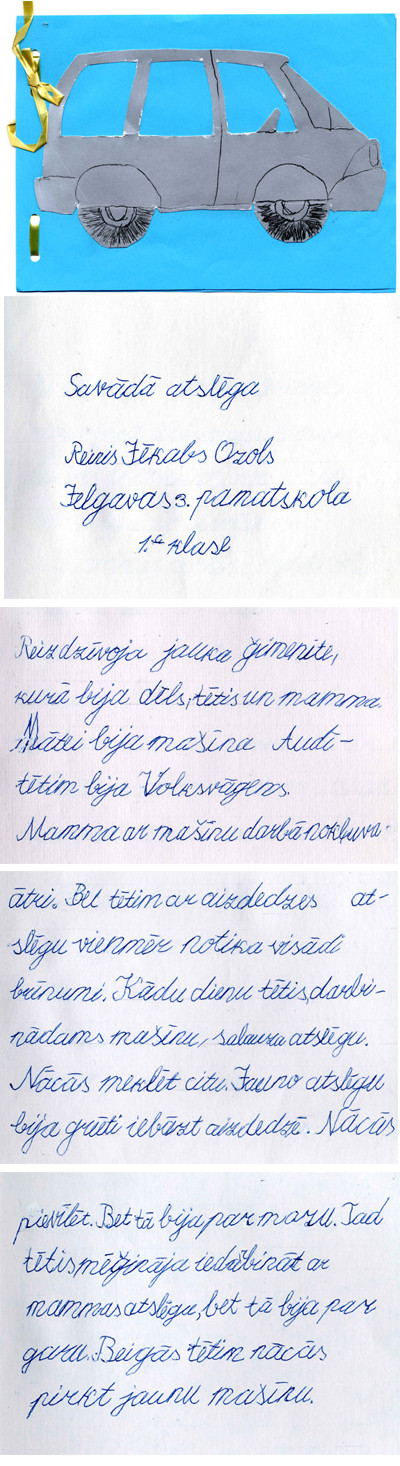 Savādā atslēga
Reinis Jēkabs Ozols
Jelgavas 3. pamatskola
1.a klase
Reiz dzīvoja jauka ģimenīte,
kurā bija dēls, tētis un mamma.
Mātei bija mašīna Audi-
tētim bija Volksvāgens.
Mamma ar mašīnu darbā nokļuva
ātri. Bet tētim ar aizdedzes at-
slēgu vienmēr notika visādi
brīnumi. Kādu dienu tētis, darbi-
nādams mašīnu, salauza atslēgu.
Nācās meklēt citu. Jauno atslēgu
bija grūti iebāzt aizdedzē. Nācās
pievīlēt. Bet tā bija par mazu. Tad
tētis mēģināja iedarbināt ar
mammas atslēgu, bet tā bija par
garu. Beigās tētim nācās
pirkt jaunu mašīnu.